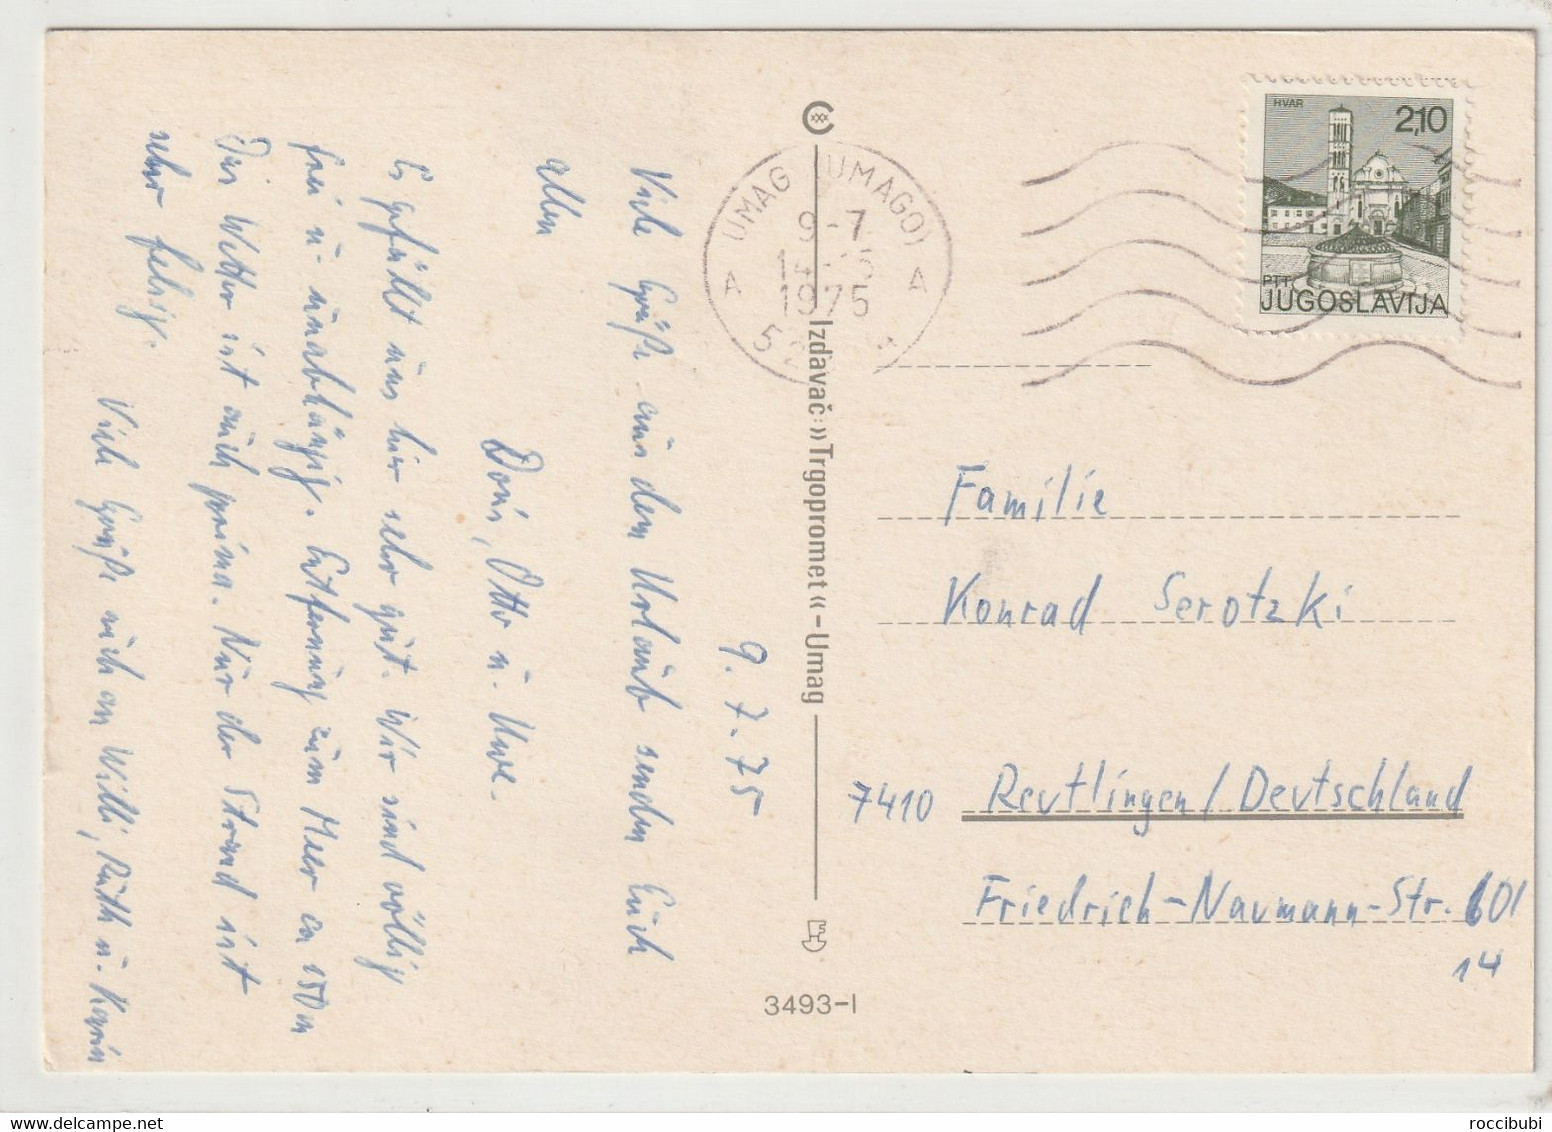 9. 7. 75
Viele Grüße aus dem Urlaub senden Euch
allen
Doris, Otto u. Uwe.
Es gefällt uns hier sehr gut. Wir sind völlig
frei u. unabhängig. Entfernung zum Meer ca 150 m
Das Wetter ist auch prima. Nur der Strand ist
sehr felsig.
Viele Grüße auch an Willi, Ruth u. Karin
UMAG (UMAGO)
9-7
1975
A A
Izdavač: »Trgopromet« – Umag
3493-I
HVAR
2,10
PTT
JUGOSLAVIJA
Familie
Konrad Serotzki
7410 Reutlingen / Deutschland
Friedrich-Naumann-Str. 601
14
roccibubi